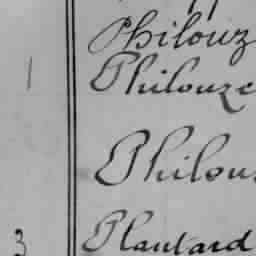 Philouz
1 Philouze
Philou
3 Plantard